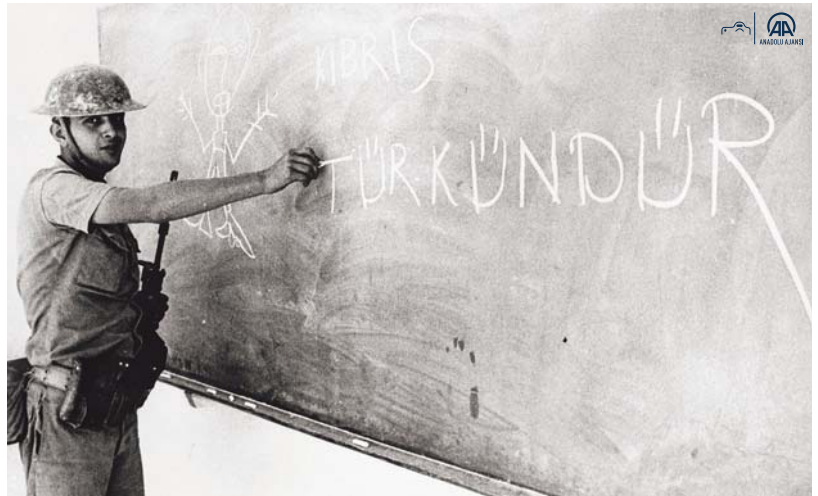 AA
ANADOLU AJANSI
KIBRIS
TÜRKÜNDÜR